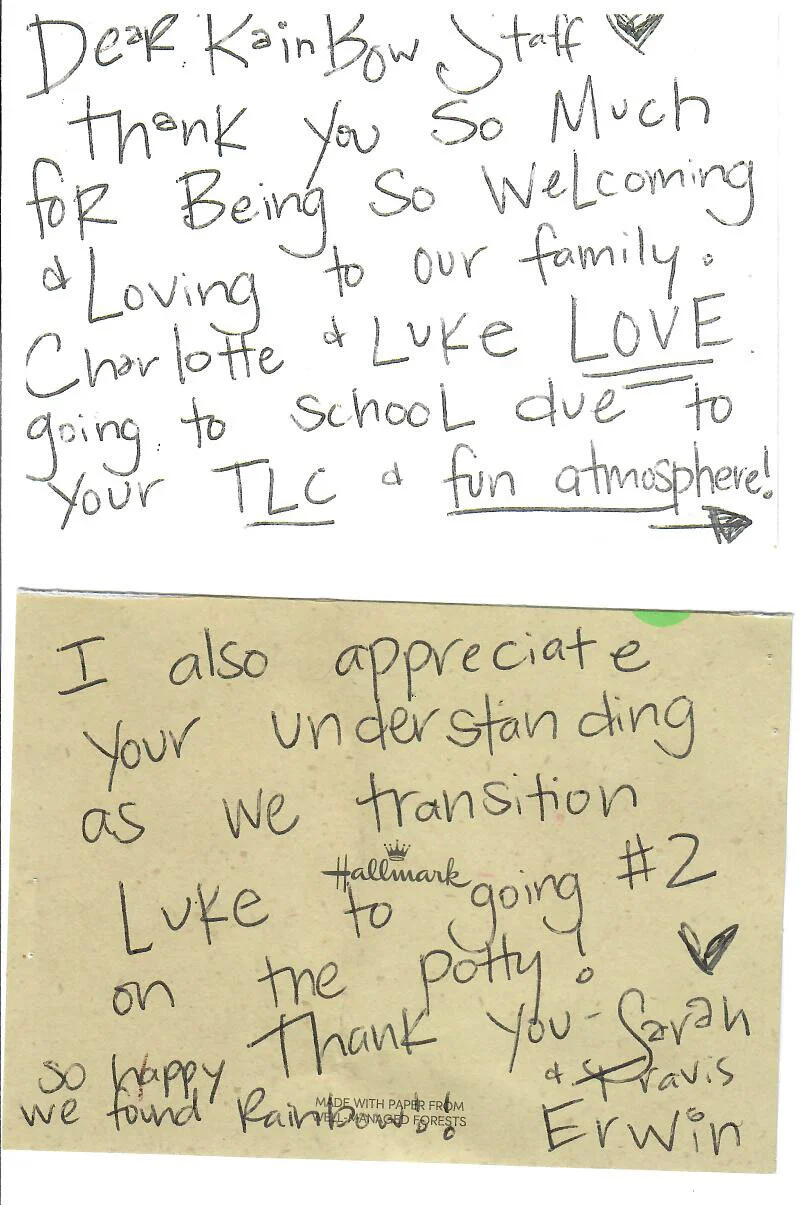 Dear RainBow Staff
Thank you So Much
foR Being So Welcoming
& Loving to our family.
Charlotte & Luke LOVE
going to school due to
your TLC & fun atmosphere!
I also appreciate
your understanding
as we transition
Hallmark
Luke to going #2
on the potty!
Thank you - Sarah
& Travis
Erwin
so happy
we found Rainbow!!
MADE WITH PAPER FROM
WELL-MANAGED FORESTS